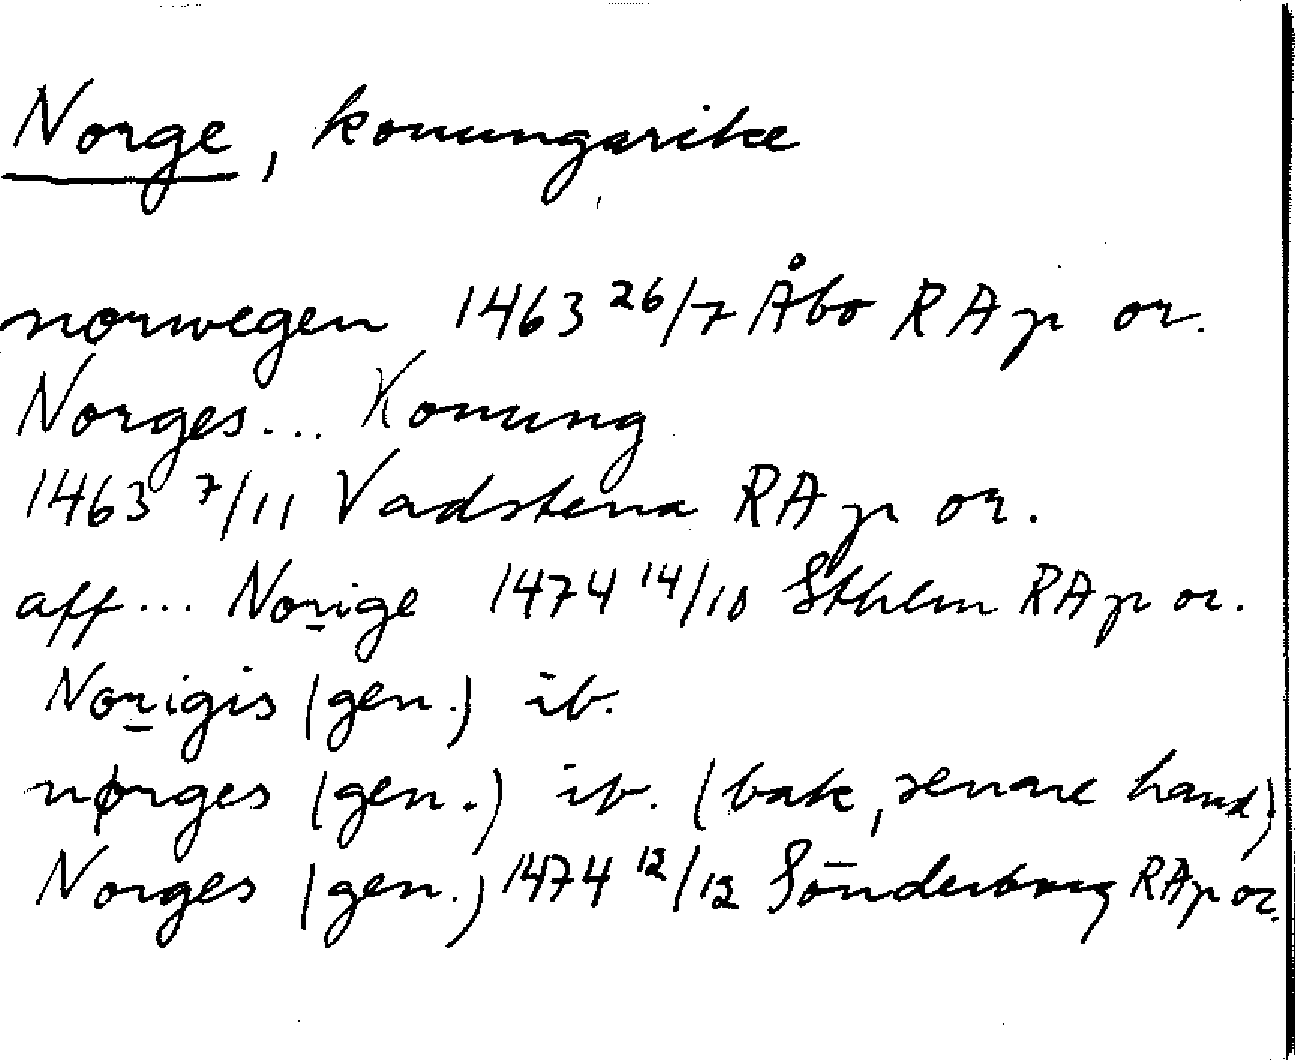 Norge, konungarike
norwegen 1463 26/7 Åbo RA p or.
Norges... Konung
1463 7/11 Vadstena RA p or.
aff... Norige 1474 14/10 Sthlm RA p or.
Norigis (gen.) ib.
nørges (gen.) ib. (bak, senare hand)
Norges (gen.) 1474 12/12 Sönderborg RA p or.